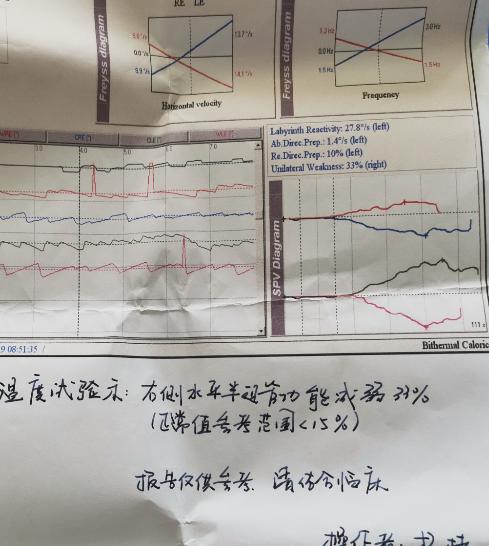 RE LE
Freyss diagram
Horizontal velocity
Freyss diagram
3.0 Hz
0.0 Hz
1.5 Hz
Frequency
5.0
7.0
Labyrinth Reactivity: 27.8°/s (left)
Ab.Direc.Prep.: 1.4°/s (left)
Re.Direc.Prep.: 10% (left)
Unilateral Weakness: 33% (right)
SPV Diagram
111 s
9 08:51:35 /
Bithermal Caloric
温度试验示: 右侧水平半规管功能减弱 33%
(正常值参考范围<15%)
报告仅供参考 请结合临床
操作者: